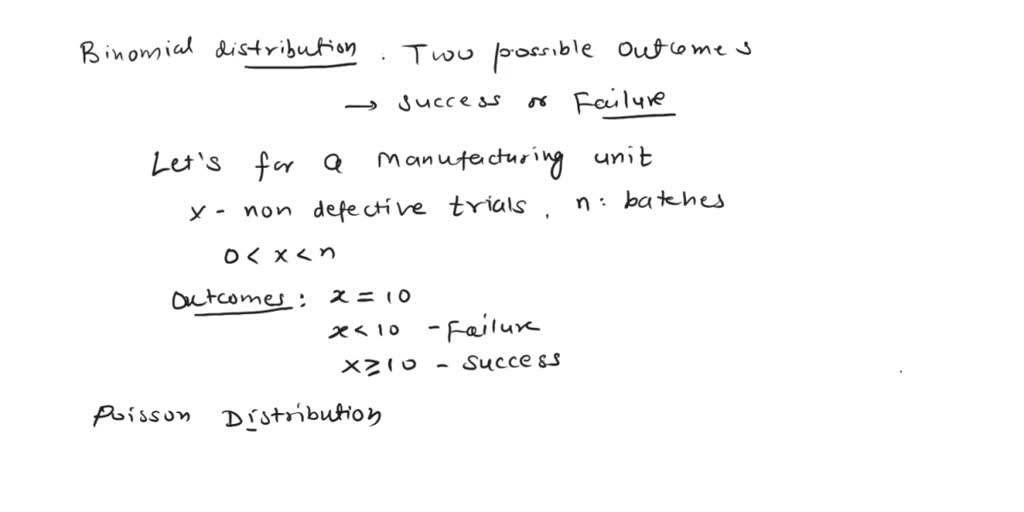 Binomial distribution. Two possible outcomes
→ success or Failure
Let's for a manufacturing unit
x - non defective trials, n: batches
0 < x < n
Outcomes: x = 10
x < 10 - Failure
x ≥ 10 - Success
Poisson Distribution